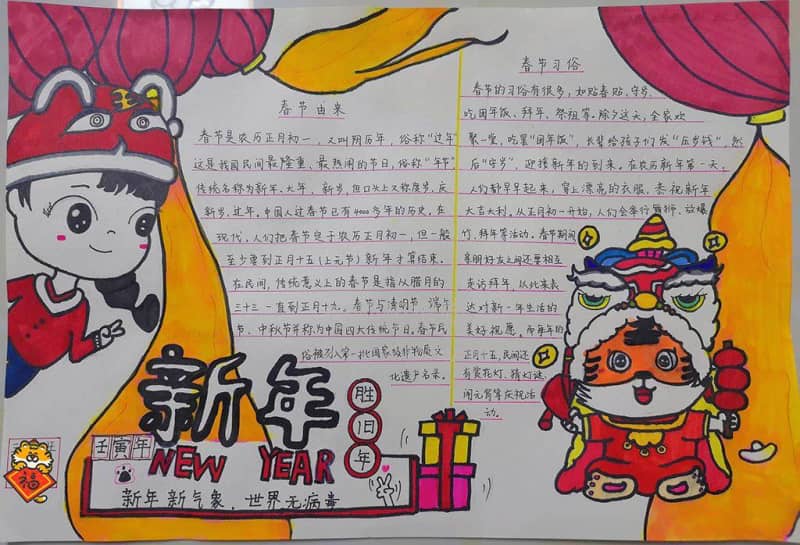 春节由来
春节是农历正月初一，又叫阴历年，俗称“过年”
这是我国民间最隆重、最热闹的节日，俗称“年节”
传统名称为新年、大年，新岁，但口头上又称度岁、庆
新岁、过年。中国人过春节已有4000多年的历史，在
现代，人们把春节定于农历正月初一，但一般
至少要到正月十五(上元节)新年才算结束。
在民间，传统意义上的春节是指从腊月的
三十三一直到正月十九。春节与清明节、端午
节、中秋节并称为中国四大传统节日。春节民
俗被列入第一批国家级非物质文
化遗产名录。
春节习俗
春节的习俗有很多，如贴春贴、守岁、
吃团年饭、拜年、祭祖等。除夕这天，全家欢
聚一堂，吃罢“团年饭”，长辈给孩子们发“压岁钱”，然
后“守岁”，迎接新年的到来。在农历新年第一天，
人们都早早起来，穿上漂亮的衣服，恭祝新年
大吉大利。从正月初一开始，人们会举行舞狮、放爆
竹、拜年等活动。春节期间
亲朋好友之间还要相互
走访拜年，以此来表
达对新一年生活的
美好祝愿。而每年的
正月十五，民间还
有赏花灯、猜灯谜、
闹元宵等庆祝活
动。
新年
胜旧年
壬寅年
NEW YEAR
新年新气象，世界无病毒
福